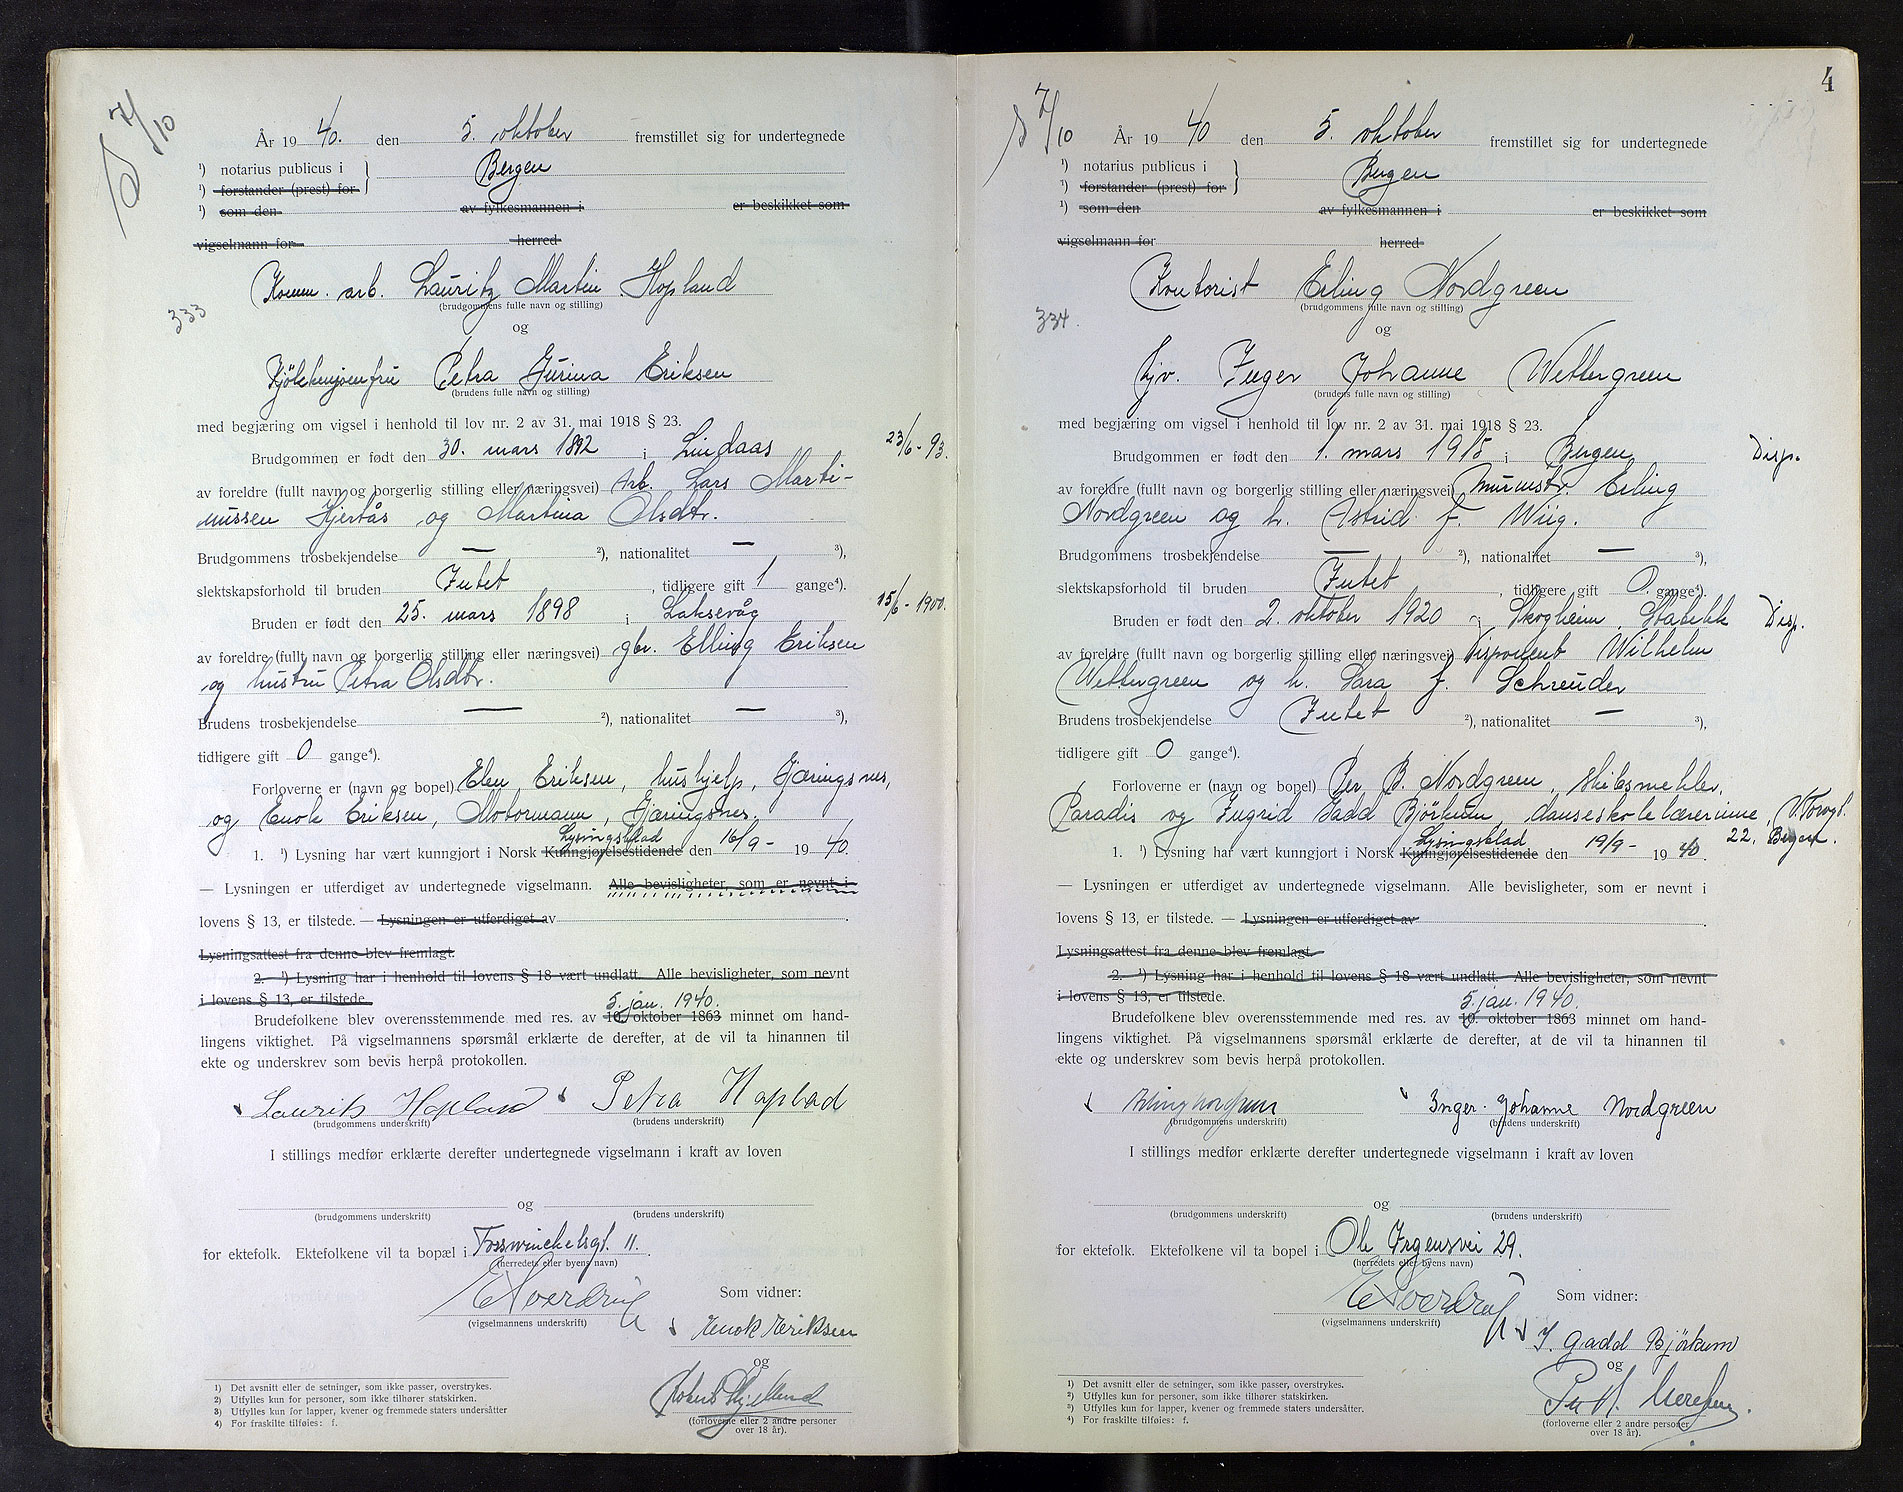 7/10
År 19 40. den 5. oktober fremstillet sig for undertegnede
1) notarius publicus i Bergen
1) forstander (prest) for
1) som den av fylkesmannen i er beskikket som
vigselmann for herred
Komm. arb. Lauritz Martin Hopland
(brudgommens fulle navn og stilling)
333
og
Kjökkenjomfru Petra Jurina Eriksen
(brudens fulle navn og stilling)
med begjæring om vigsel i henhold til lov nr. 2 av 31. mai 1918 § 23.
Brudgommen er født den 30. mars 1892 i Lindaas 23/6-93.
av foreldre (fullt navn og borgerlig stilling eller næringsvei) Arb. Lars Marti-
nussen Hjertås og Martina Olsdtr.
Brudgommens trosbekjendelse — 2), nationalitet — 3),
slektskapsforhold til bruden Intet, tidligere gift 1 gange4).
Bruden er født den 25. mars 1898 i Laksevåg 15/6-1900.
av foreldre (fullt navn og borgerlig stilling eller næringsvei) gbr. Elling Eriksen
og hustru Petra Olsdtr.
Brudens trosbekjendelse — 2), nationalitet — 3),
tidligere gift 0 gange4).
Forloverne er (navn og bopel) Elen Eriksen, hushjelp, Hjæringsnes,
og Enok Eriksen, Motormann, Hjæringsnes.
Lysingsblad
1. 1) Lysning har vært kunngjort i Norsk Kunngjørelsestidende den 16/9 - 19 40.
— Lysningen er utferdiget av undertegnede vigselmann. Alle bevisligheter, som er nevnt i
lovens § 13, er tilstede. — Lysningen er utferdiget av
Lysningsattest fra denne blev fremlagt.
2. 1) Lysning har i henhold til lovens § 18 vært undlatt. Alle bevisligheter, som nevnt
i lovens § 13, er tilstede.
5. jan. 1940.
Brudefolkene blev overensstemmende med res. av 10. oktober 1863 minnet om hand-
lingens viktighet. På vigselmannens spørsmål erklærte de derefter, at de vil ta hinannen til
ekte og underskrev som bevis herpå protokollen.
Laurits Hopland Petra Hopland
(brudgommens underskrift) (brudens underskrift)
I stillings medfør erklærte derefter undertegnede vigselmann i kraft av loven
og
(brudgommens underskrift) (brudens underskrift)
for ektefolk. Ektefolkene vil ta bopæl i Fosswinckelsgt. 11.
(herredets eller byens navn)
Som vidner:
(vigselmannens underskrift)
Enok Eriksen
og
(forloverne eller 2 andre personer
over 18 år).
1) Det avsnitt eller de setninger, som ikke passer, overstrykes.
2) Utfylles kun for personer, som ikke tilhører statskirken.
3) Utfylles kun for lapper, kvener og fremmede staters undersåtter
4) For fraskilte tilføies: f.
4
7/10
År 19 40 den 5. oktober fremstillet sig for undertegnede
1) notarius publicus i Bergen
1) forstander (prest) for
1) som den av fylkesmannen i er beskikket som
vigselmann for herred
Kontorist Erling Nordgreen
(brudgommens fulle navn og stilling)
334.
og
Hjv. Inger Johanne Wettergreen
(brudens fulle navn og stilling)
med begjæring om vigsel i henhold til lov nr. 2 av 31. mai 1918 § 23.
Brudgommen er født den 1. mars 1915 i Bergen Disp.
av foreldre (fullt navn og borgerlig stilling eller næringsvei) Murmstr. Erling
Nordgreen og h. Astrid f. Wiig.
Brudgommens trosbekjendelse — 2), nationalitet — 3),
slektskapsforhold til bruden Intet, tidligere gift 0 gange4).
Bruden er født den 2. oktober 1920 i Skogheim, Stabekk Disp.
av foreldre (fullt navn og borgerlig stilling eller næringsvei) Disponent Wilhelm
Wettergreen og h. Sara f. Schreuder
Brudens trosbekjendelse Intet 2), nationalitet — 3),
tidligere gift 0 gange4).
Forloverne er (navn og bopel) Per B. Nordgreen, skibsmekler,
Paradis og Ingrid Gadd Bjørkum, danseskolelærerinne, V. Torvgt.
22. Bergen.
Lysingsblad
1. 1) Lysning har vært kunngjort i Norsk Kunngjørelsestidende den 19/9 - 19 40.
— Lysningen er utferdiget av undertegnede vigselmann. Alle bevisligheter, som er nevnt i
lovens § 13, er tilstede. — Lysningen er utferdiget av
Lysningsattest fra denne blev fremlagt.
2. 1) Lysning har i henhold til lovens § 18 vært undlatt. Alle bevisligheter, som nevnt
i lovens § 13, er tilstede.
5. jan. 1940.
Brudefolkene blev overensstemmende med res. av 10. oktober 1863 minnet om hand-
lingens viktighet. På vigselmannens spørsmål erklærte de derefter, at de vil ta hinannen til
ekte og underskrev som bevis herpå protokollen.
Erling Nordgreen Inger Johanne Nordgreen
(brudgommens underskrift) (brudens underskrift)
I stillings medfør erklærte derefter undertegnede vigselmann i kraft av loven
og
(brudgommens underskrift) (brudens underskrift)
for ektefolk. Ektefolkene vil ta bopel i Ole Irgensvei 29.
(herredets eller byens navn)
Som vidner:
(vigselmannens underskrift)
I. Gadd Björkum
og
(forloverne eller 2 andre personer
over 18 år).
1) Det avsnitt eller de setninger, som ikke passer, overstrykes.
2) Utfylles kun for personer, som ikke tilhører statskirken.
3) Utfylles kun for lapper, kvener og fremmede staters undersåtter.
4) For fraskilte tilføies: f.